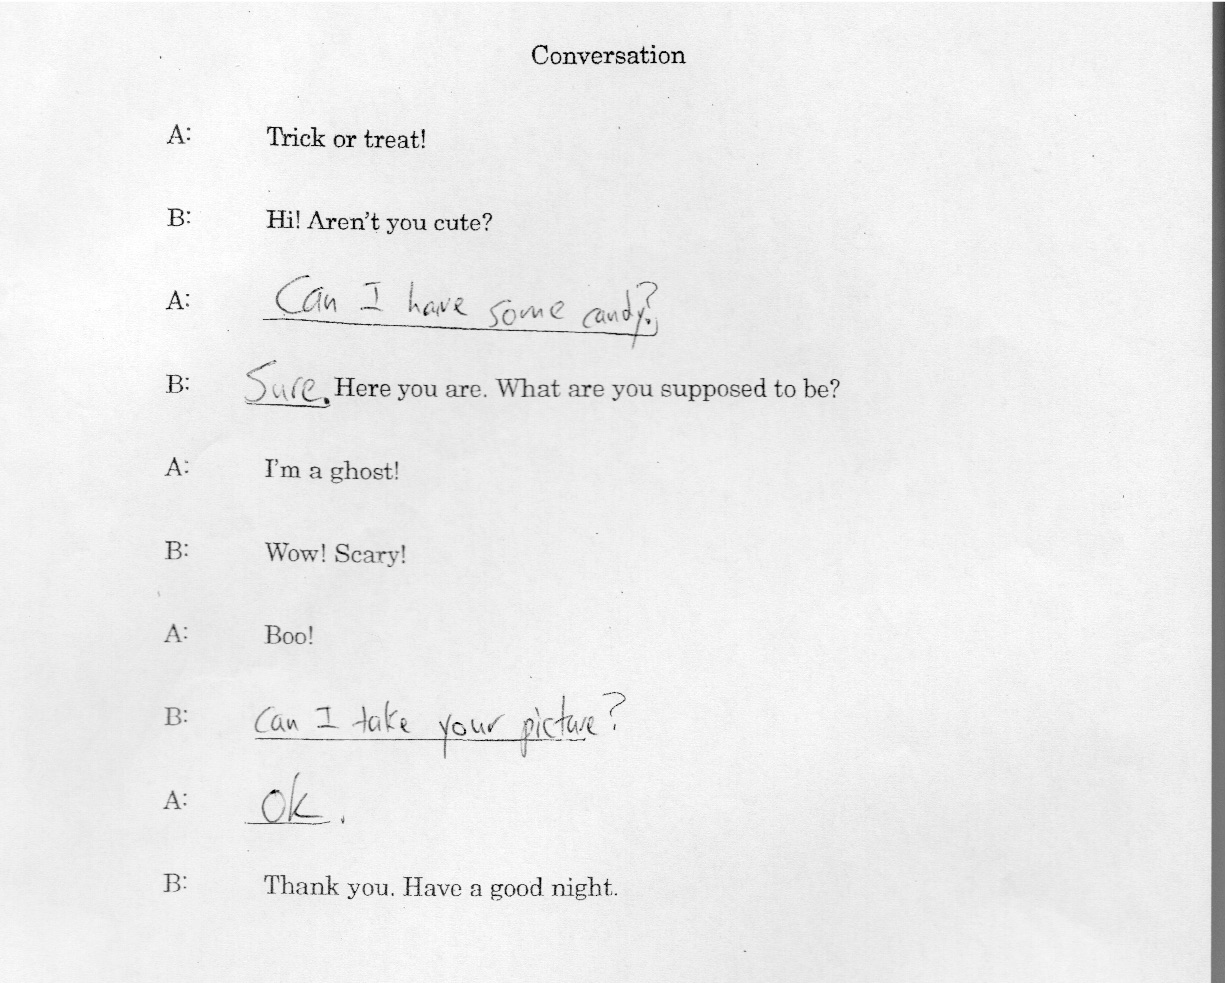 Conversation
A: Trick or treat!
B: Hi! Aren't you cute?
A: Can I have some candy?
B: Sure. Here you are. What are you supposed to be?
A: I'm a ghost!
B: Wow! Scary!
A: Boo!
B: Can I take your picture?
A: Ok.
B: Thank you. Have a good night.